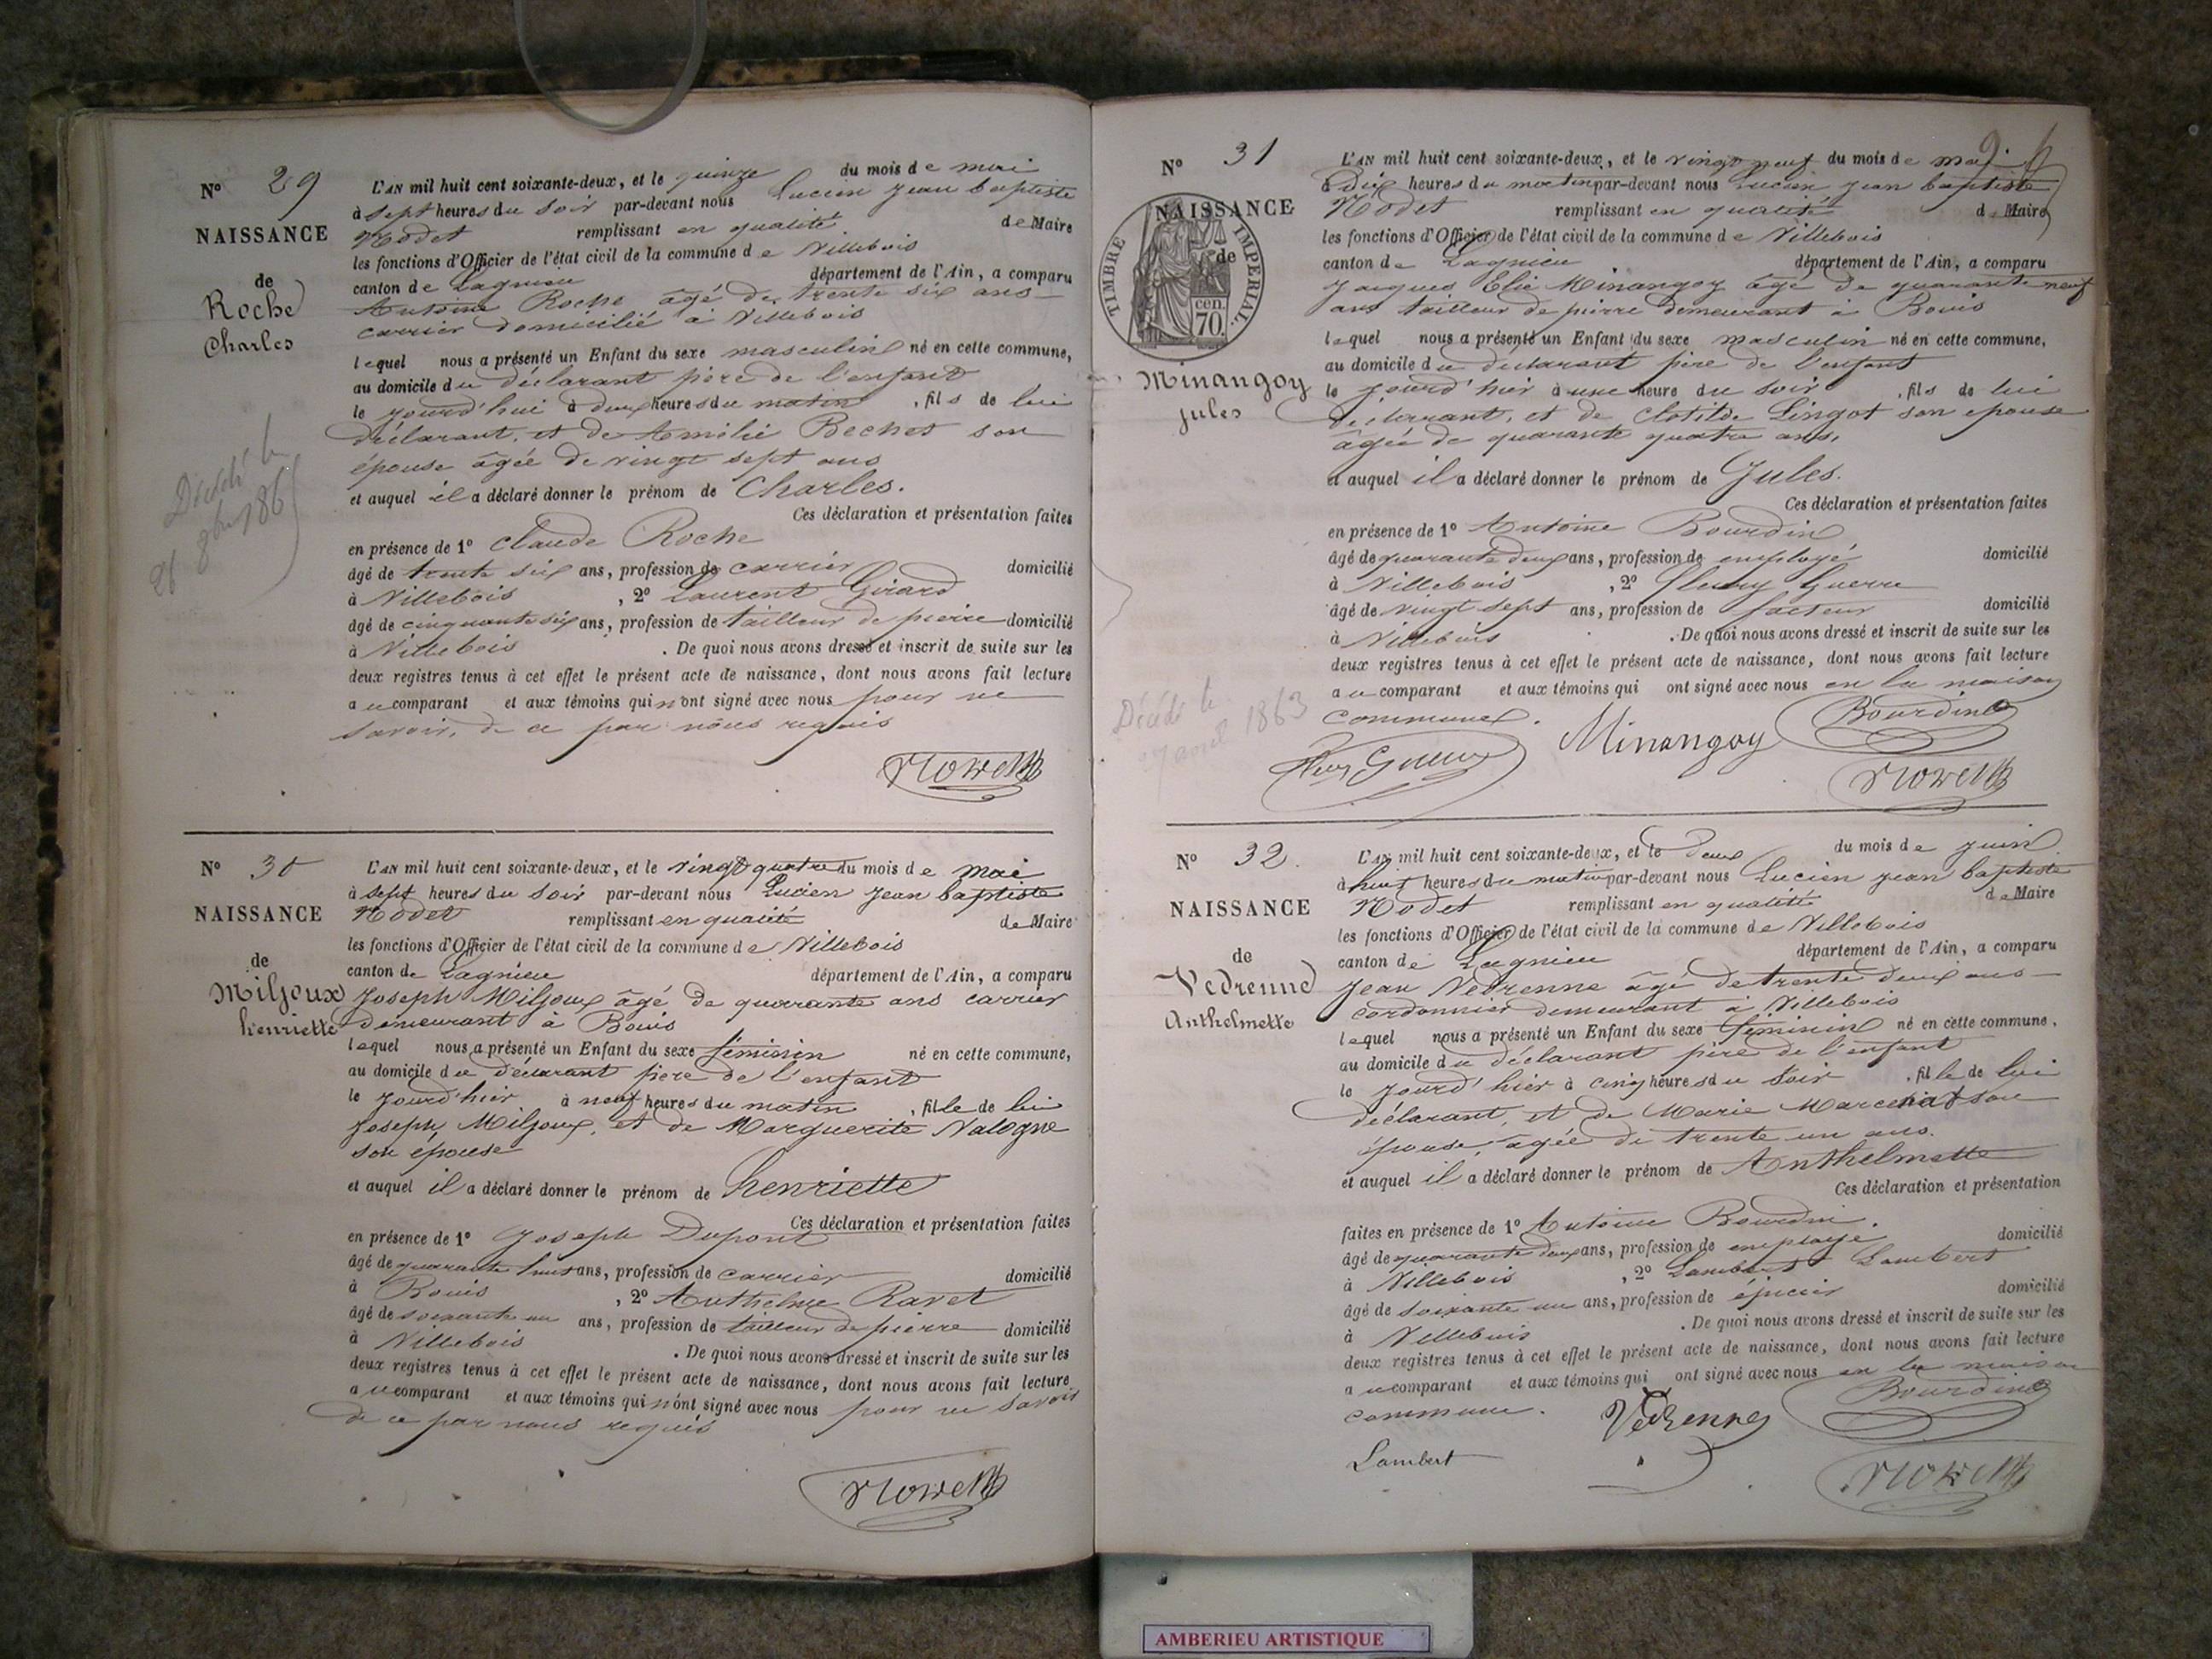 N° 29
NAISSANCE
de
Roche
Charles
Décédé le
L'AN mil huit cent soixante-deux, et le quinze du mois de mai
à sept heures du soir par-devant nous Lucien Jean baptiste
Nodet remplissant en qualité de Maire
les fonctions d'Officier de l'état civil de la commune de Villebois
canton de Lagnieu département de l'Ain, a comparu
Antoine Roche âgé de trente six ans
carrier domicilié à Villebois
lequel nous a présenté un Enfant du sexe masculin né en cette commune,
au domicile du déclarant père de l'enfant
le jourd'hui à deux heures du matin, fils de lui
déclarant, et de Amélie Bechet son
épouse âgée de vingt sept ans
et auquel il a déclaré donner le prénom de Charles.
Ces déclaration et présentation faites
en présence de 1° Claude Roche
âgé de trente six ans, profession de carrier domicilié
à Villebois, 2° Laurent Girard
âgé de cinquante six ans, profession de tailleur de pierre domicilié
à Villebois. De quoi nous avons dressé et inscrit de suite sur les
deux registres tenus à cet effet le présent acte de naissance, dont nous avons fait lecture
au comparant et aux témoins qui n'ont signé avec nous pour ne
savoir, de ce par nous requis
N° 30
NAISSANCE
de
Miljoux
henriette
L'AN mil huit cent soixante-deux, et le vingt quatre du mois de mai
à sept heures du soir par-devant nous Lucien Jean baptiste
Nodet remplissant en qualité de Maire
les fonctions d'Officier de l'état civil de la commune de Villebois
canton de Lagnieu département de l'Ain, a comparu
Joseph Miljoux âgé de quarante ans carrier
demeurant à Bouis
lequel nous a présenté un Enfant du sexe féminin né en cette commune,
au domicile du déclarant père de l'enfant
le jourd'hier à neuf heures du matin, fille de lui
Joseph Miljoux, et de Marguerite Valogne
son épouse
et auquel il a déclaré donner le prénom de henriette
Ces déclaration et présentation faites
en présence de 1° Joseph Dupont
âgé de quarante huit ans, profession de carrier domicilié
à Bouis, 2° Anthelme Ravet
âgé de soixante un ans, profession de tailleur de pierre domicilié
à Villebois. De quoi nous avons dressé et inscrit de suite sur les
deux registres tenus à cet effet le présent acte de naissance, dont nous avons fait lecture
au comparant et aux témoins qui n'ont signé avec nous pour ne savoir
de ce par nous requis
N° 31
NAISSANCE
de
TIMBRE IMPERIAL.
cen.
70
Minangoy
jules
Décédé le
27 avril 1863
L'AN mil huit cent soixante-deux, et le vingt neuf du mois de mai
à dix heures du matin par-devant nous Lucien Jean baptiste
Nodet remplissant en qualité de Maire
les fonctions d'Officier de l'état civil de la commune de Villebois
canton de Lagnieu département de l'Ain, a comparu
Jacques Elie Minangoy âgé de quarante neuf
ans tailleur de pierre demeurant à Bouis
lequel nous a présenté un Enfant du sexe masculin né en cette commune,
au domicile du déclarant père de l'enfant
le jourd'hier à une heure du soir, fils de lui
déclarant, et de Clotilde Lingot son épouse
âgée de quarante quatre ans,
et auquel il a déclaré donner le prénom de Jules.
Ces déclaration et présentation faites
en présence de 1° Antoine Bourdin
âgé de quarante deux ans, profession de employé domicilié
à Villebois, 2° Fleury Guerre
âgé de vingt sept ans, profession de facteur domicilié
à Villebois. De quoi nous avons dressé et inscrit de suite sur les
deux registres tenus à cet effet le présent acte de naissance, dont nous avons fait lecture
au comparant et aux témoins qui ont signé avec nous en la maison
commune. Minangoy Bourdin
N° 32.
NAISSANCE
de
Vedrenne
Anthelmette
L'AN mil huit cent soixante-deux, et le deux du mois de juin
à huit heures du matin par-devant nous Lucien jean baptiste
Nodet remplissant en qualité de Maire
les fonctions d'Officier de l'état civil de la commune de Villebois
canton de Lagnieu département de l'Ain, a comparu
Jean Vedrenne âgé de trente deux ans
cordonnier demeurant à Villebois
lequel nous a présenté un Enfant du sexe féminin né en cette commune,
au domicile du déclarant père de l'enfant
le jourd'hier à cinq heures du soir, fille de lui
déclarant, et de Marie Marcenat son
épouse, âgée de trente un ans.
et auquel il a déclaré donner le prénom de Anthelmette
Ces déclaration et présentation
faites en présence de 1° Antoine Bourdin.
âgé de quarante deux ans, profession de employé domicilié
à Villebois, 2° Lambert Lambert
âgé de soixante un ans, profession de épicier domicilié
à Villebois. De quoi nous avons dressé et inscrit de suite sur les
deux registres tenus à cet effet le présent acte de naissance, dont nous avons fait lecture
au comparant et aux témoins qui ont signé avec nous en la maison
commune. Vedrenne Bourdin
Lambert
AMBERIEU ARTISTIQUE